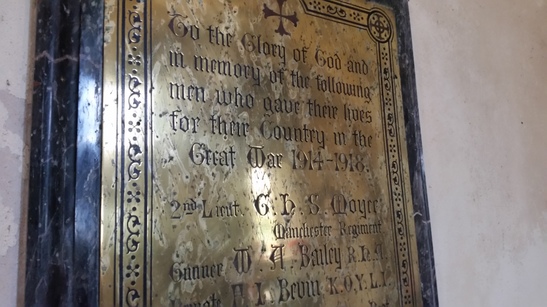 To the Glory of God and
in memory of the following
men who gave their lives
for their Country in the
Great War 1914-1918.
2nd Lieut. C. H. S.
Manchester Regiment
Gunner W. A. Bailey R.F.A.
Private Bevin K.O.Y.L.I.